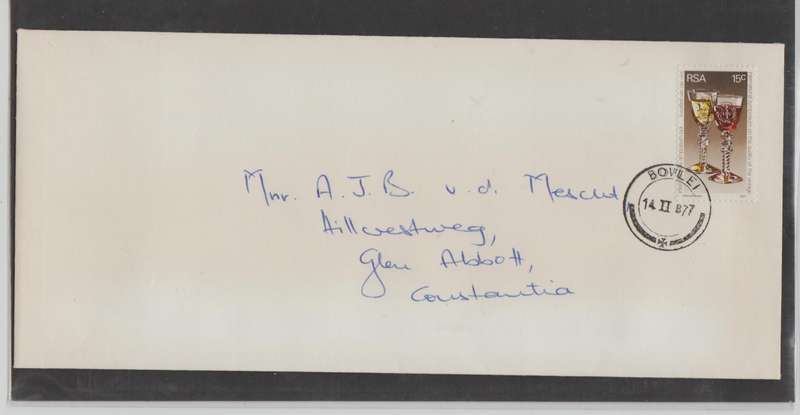 RSA 15c
BOVLEI
14 II 877
Mnr. A.J.B. v.d. Mescht
Hillcrestweg,
Glen Abbott,
Constantia